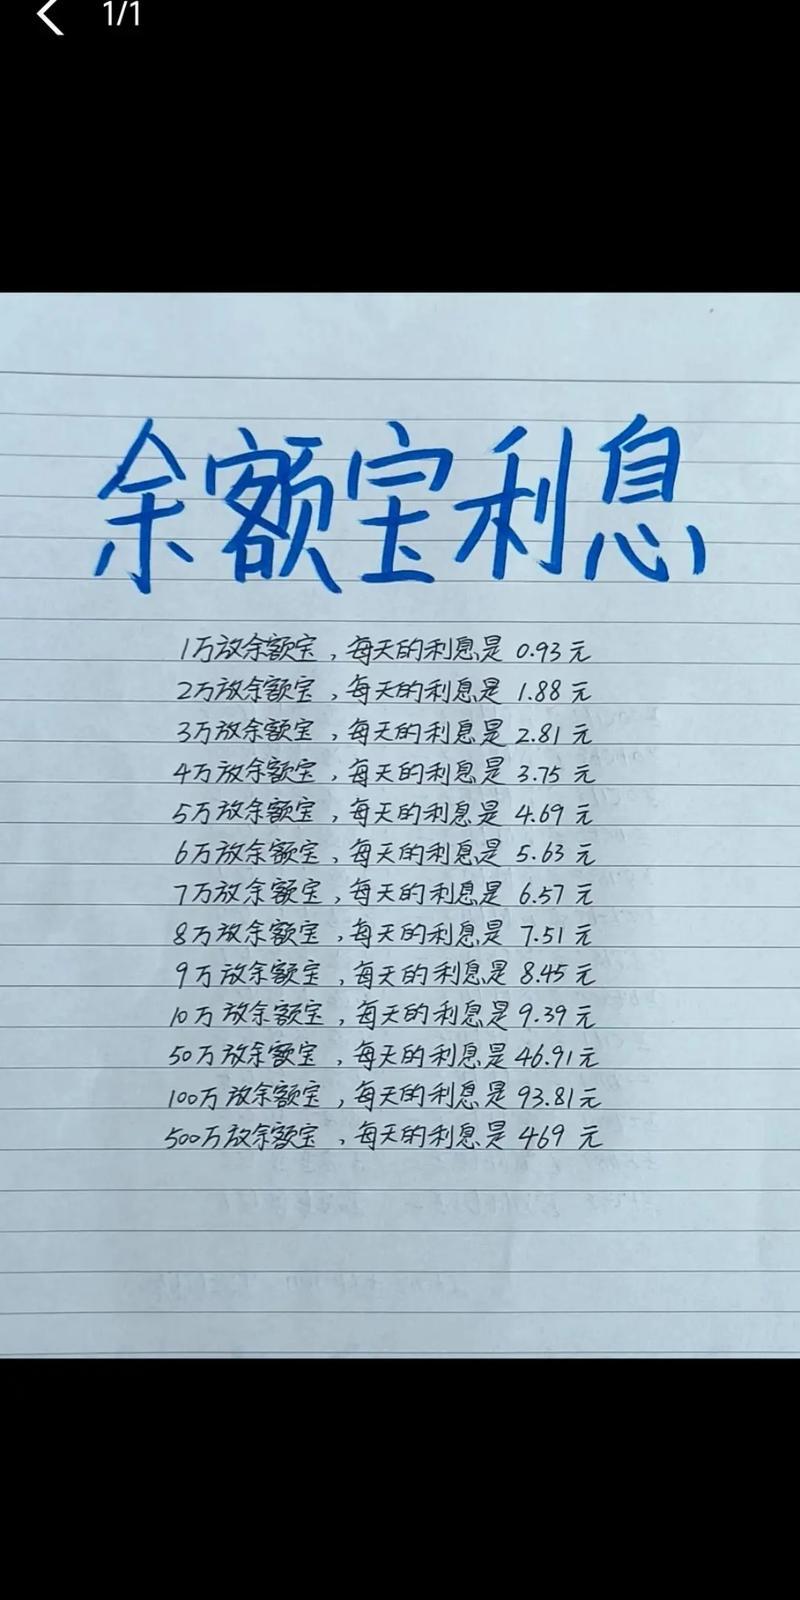 1/1
余额宝利息
1万放余额宝，每天的利息是 0.93 元
2万放余额宝，每天的利息是 1.88 元
3万放余额宝，每天的利息是 2.81 元
4万放余额宝，每天的利息是 3.75 元
5万放余额宝，每天的利息是 4.69 元
6万放余额宝，每天的利息是 5.63 元
7万放余额宝，每天的利息是 6.57 元
8万放余额宝，每天的利息是 7.51 元
9万放余额宝，每天的利息是 8.45 元
10万放余额宝，每天的利息是 9.39 元
50万放余额宝，每天的利息是 46.91元
100万放余额宝，每天的利息是 93.81元
500万放余额宝，每天的利息是 469 元